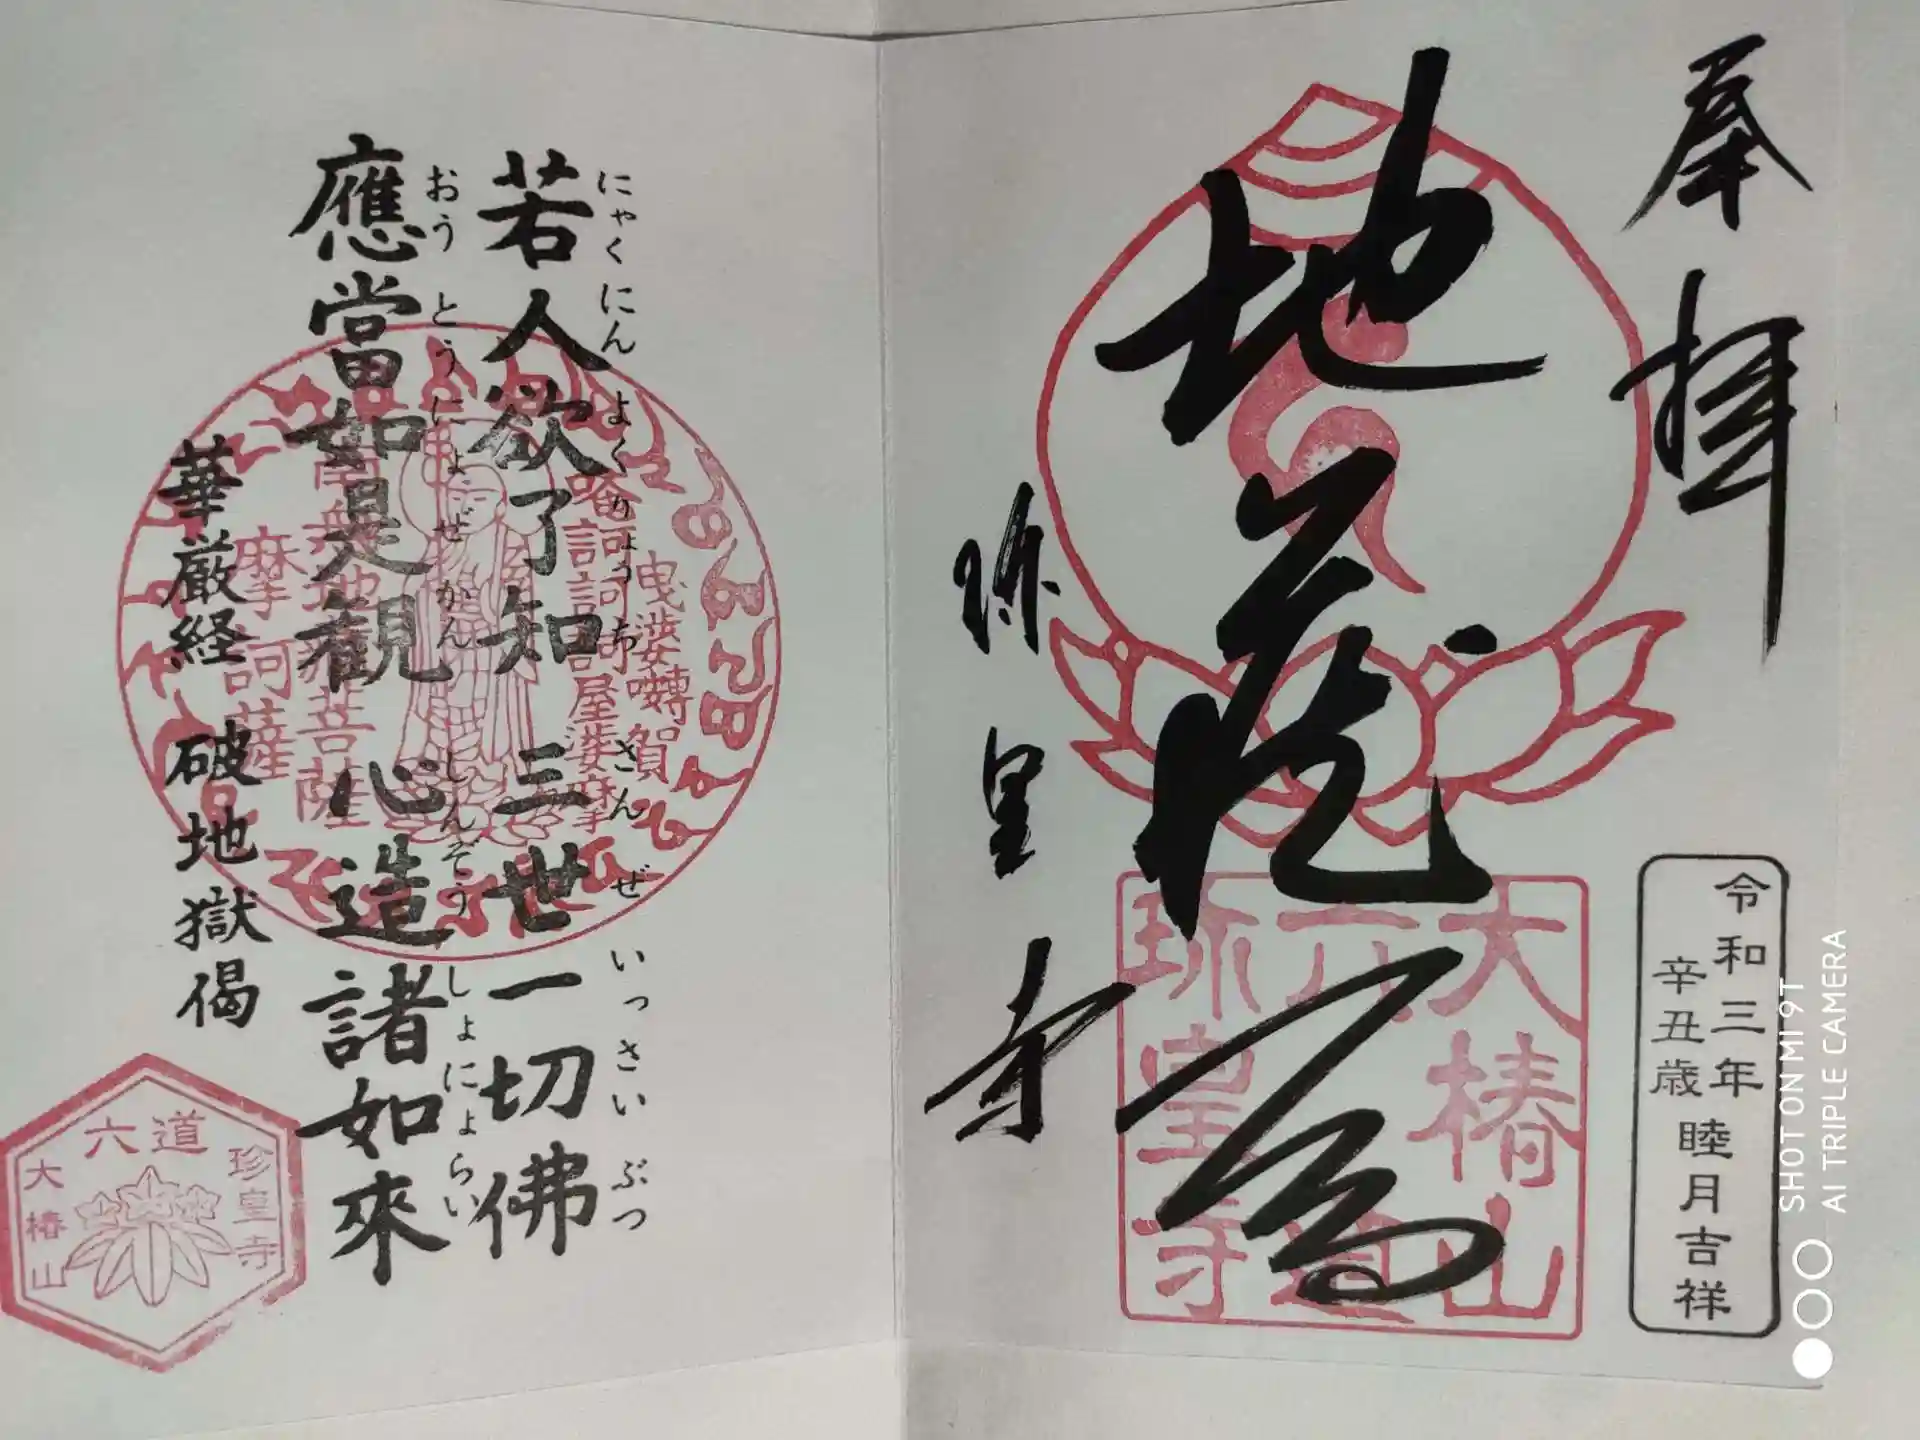 奉拝
地蔵尊
珎皇寺
大椿山
六道
珎皇寺
令和三年
辛丑歳
睦月吉祥
にゃくにんよくりょうち さんぜいっさいぶつ
若人欲了知三世一切佛
おうとうにょぜかん しんぞうしょにょらい
應當如是観心造諸如來
華厳経 破地獄偈
曳 婆囀賀
唵訶訶訶尾娑摩
南無地蔵菩薩
摩訶薩
六道
珍皇寺
大椿山
SHOT ON MI 9T
AI TRIPLE CAMERA